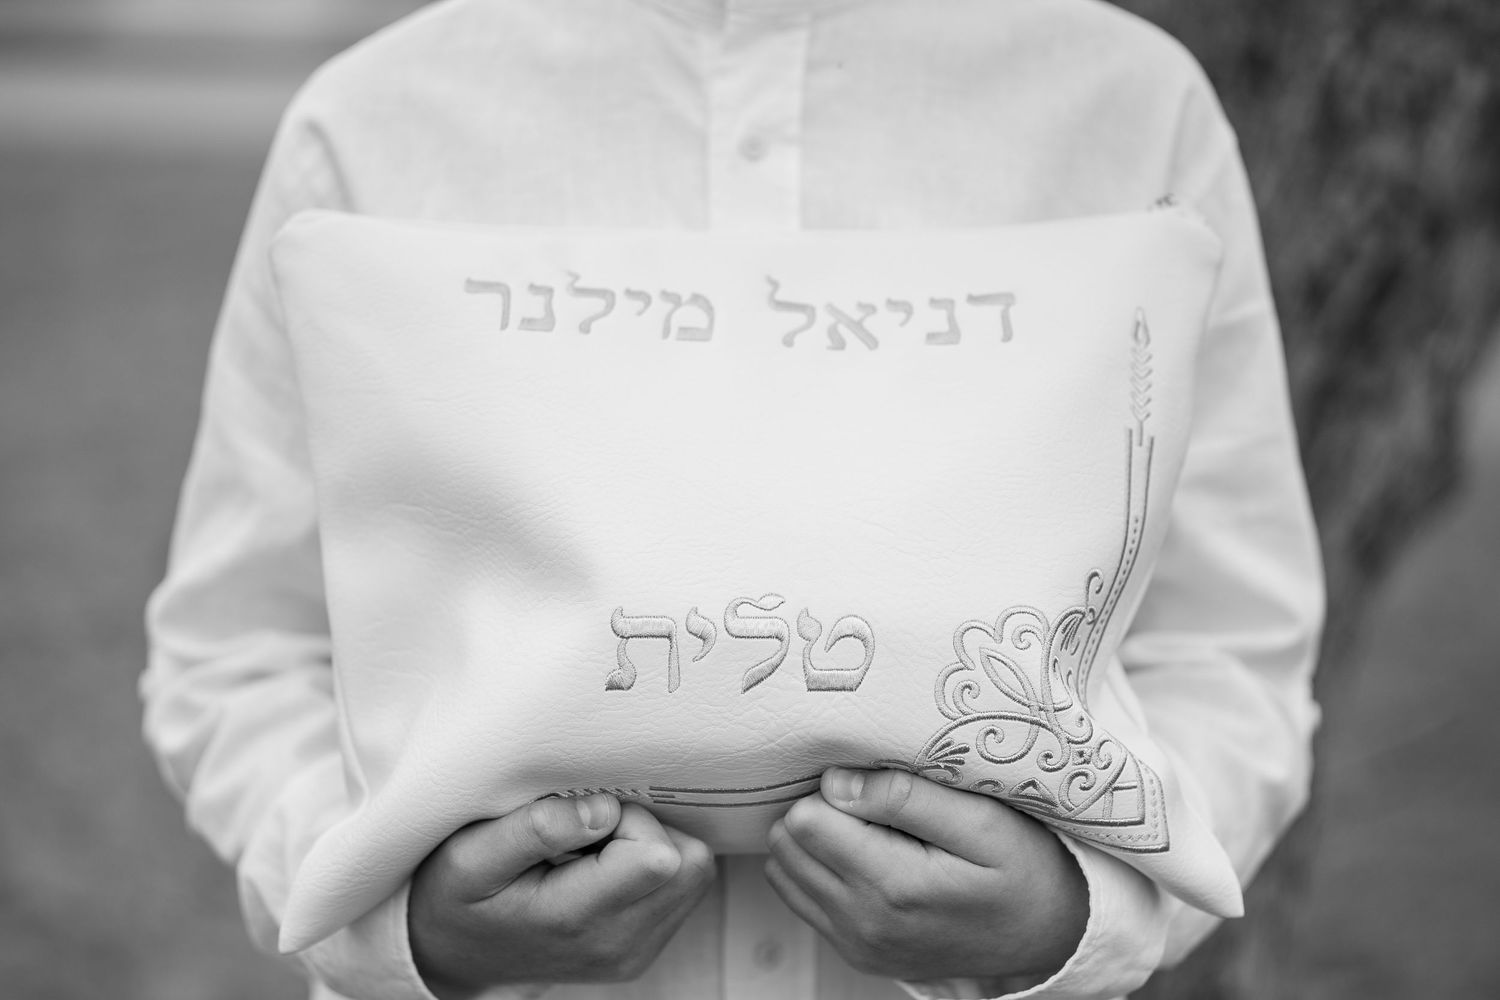 דניאל מילנר
טלית